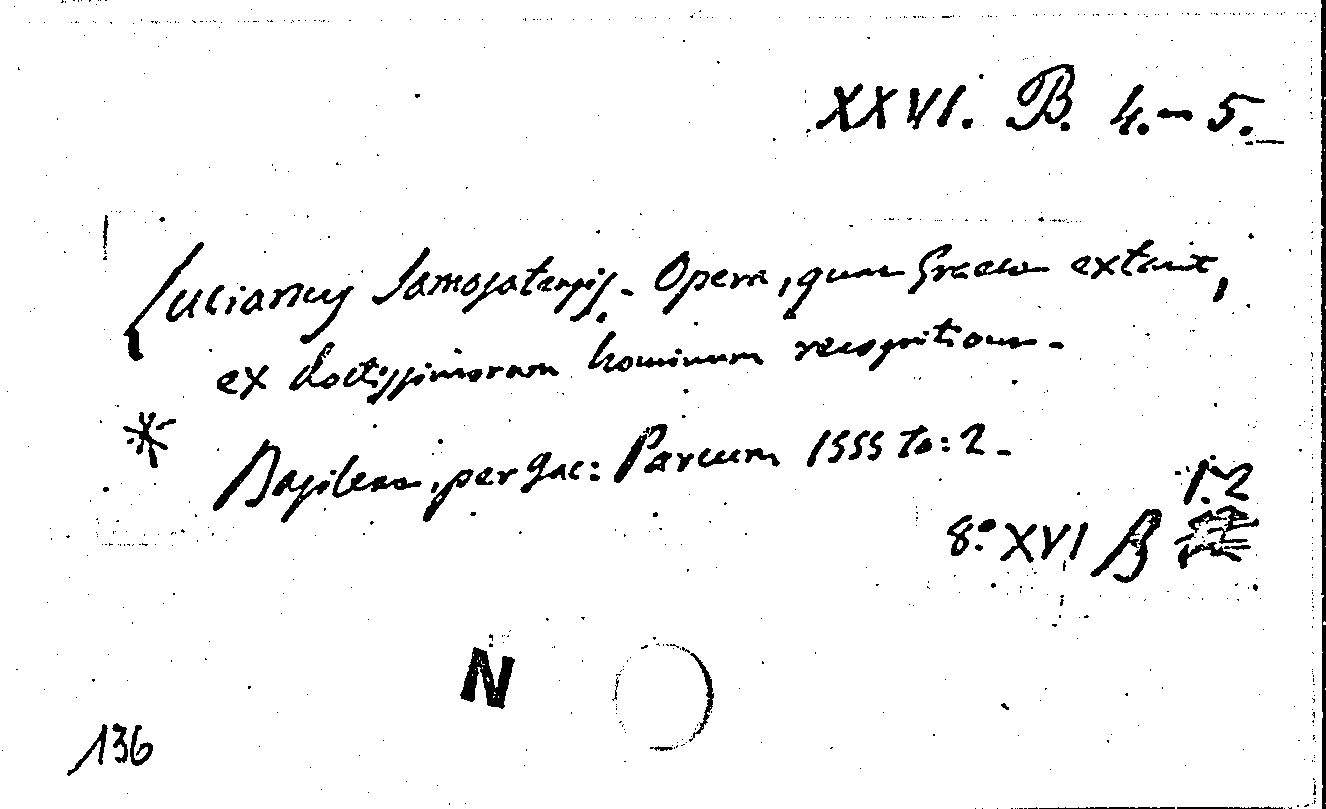 XXVI. B. 4.-5.
Lucianus Samosatensis. Opera, quae Graece extant,
ex doctissimorum hominum recognitione.
* Basileae, per Jac: Parcum 1555 to: 2.
1.2
8.° XVI B
N
136